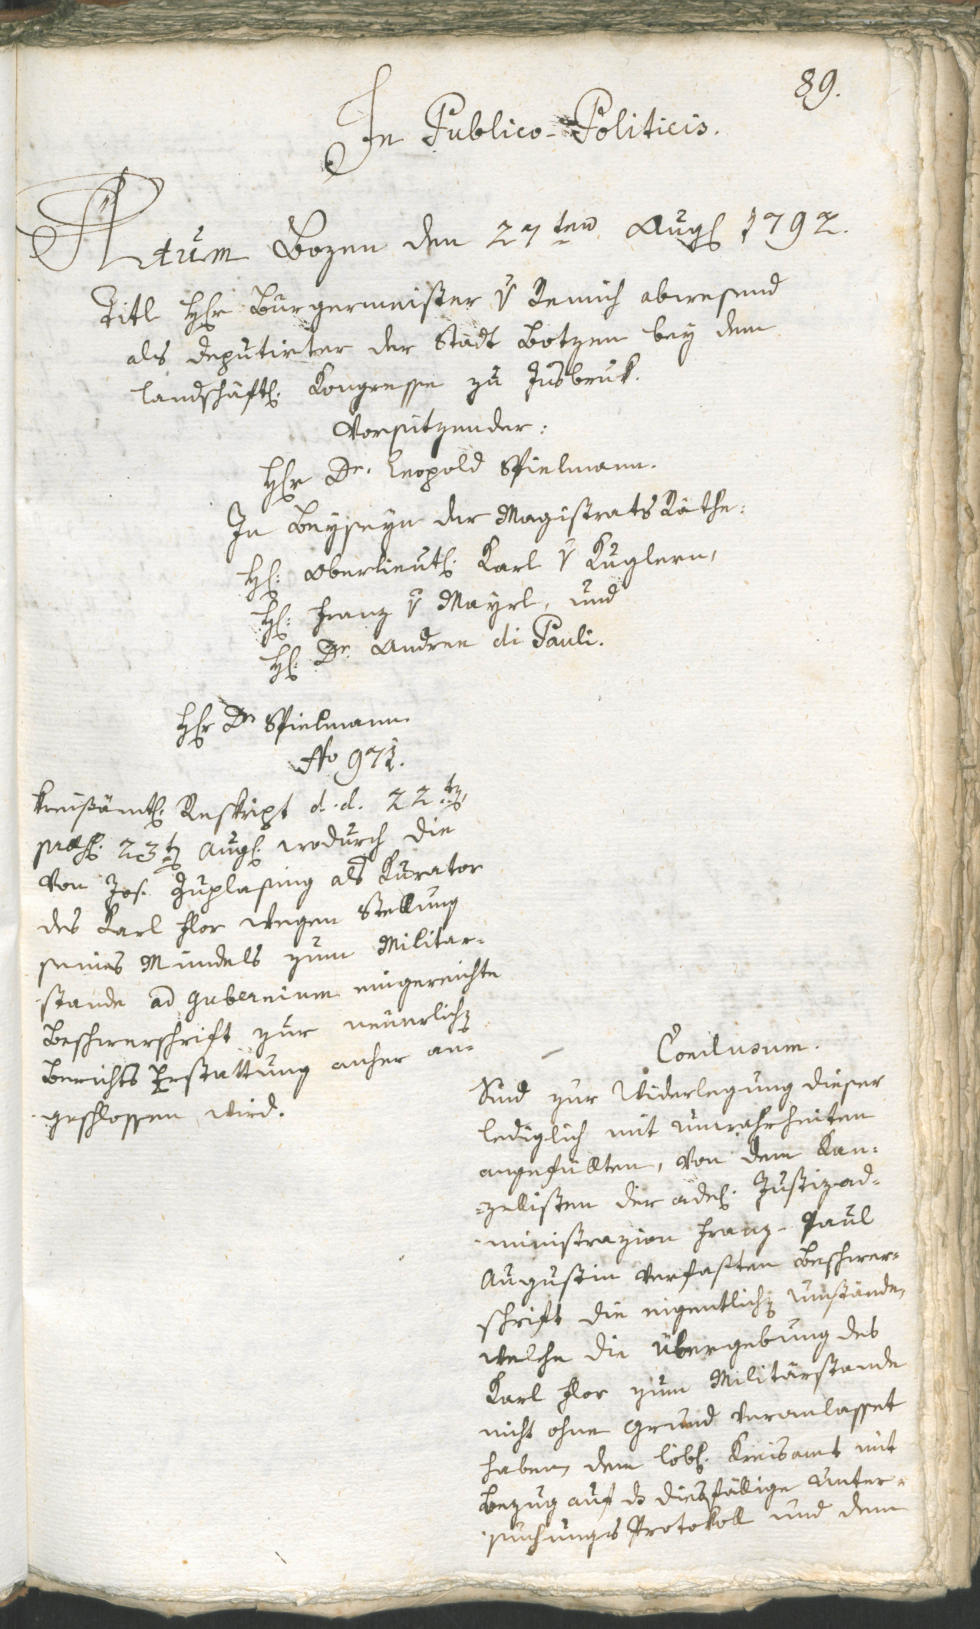 89.
In Publico-Politicis.
Actum Bozen den 27ten Augs 1792.
Titl Hr Burgermeister v Remich abwesend
als Deputirter der Stadt Botzen bey dem
landschäftl. Kongresse zu Insbruk.
Vorsitzender:
Hr Dr. Leopold Spielmann.
In Beyseyn der Magistrats Räthe:
H: Oberlieut: Karl v Kuglern,
H: Franz v Mayrl, und
H: Dr Andree di Pauli.
Hr Dr Spielmann
No 971.
Kreisämtl: Reskript d. d. 22ten
præs: 23ten Augs wodurch die
von Jos. als Kurator
des Karl Flor wegen Stellung
seines Mündels zum Militar-
stande ad Gubernium eingereichte
Beschwerschrift zur neuerlichen
Berichts Erstattung anher an-
geschlossen wird.
Conclusum.
Sind zur Widerlegung dieser
lediglich mit Unwahrheiten
angefüllten, von dem Kan-
zellisten der adel: Justizad-
ministrazion Franz-Paul
Augustin verfasten Beschwer-
schrift die eigentlichen Umstände,
welche die Übergebung des
Karl Flor zum Militärstande
nicht ohne Grund veranlasset
haben, dem löbl: Kreisamt mit
Bezug auf das diesfällige Unter-
suchungs Protokoll und dem